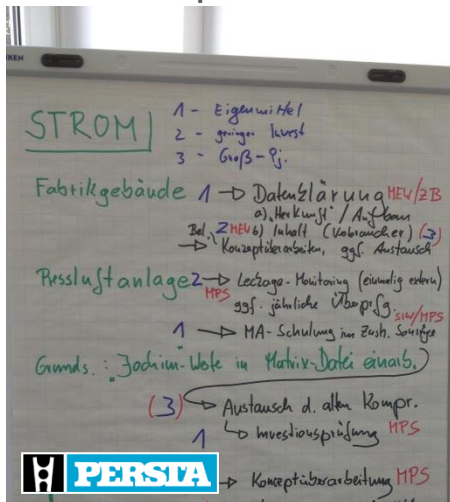 STROM
1 - Eigenmittel
2 - geringer Invest
3 - Groß-Pj.
Fabrikgebäude 1 → Datenklärung MEW/ZB
a) "Herkunft" / Aufbau
Bel. 2 MEW b) Inhalt (Verbraucher) (3)
→ Konzeptüberarbeiten, ggf. Austausch
Pressluftanlage 2 → Leckage-Monitoring (einmalig extern)
MPS ggf. jährliche Überprfg. SIW/MPS
1 → MA-Schulung im Zush. Sonstige
Grunds.: "Jochim"-Werte in Matrix-Datei einarb.
(3) → Austausch d. alten Kompr.
1 → Investionsprüfung MPS
→ Konzeptüberarbeitung MPS
PERSTA